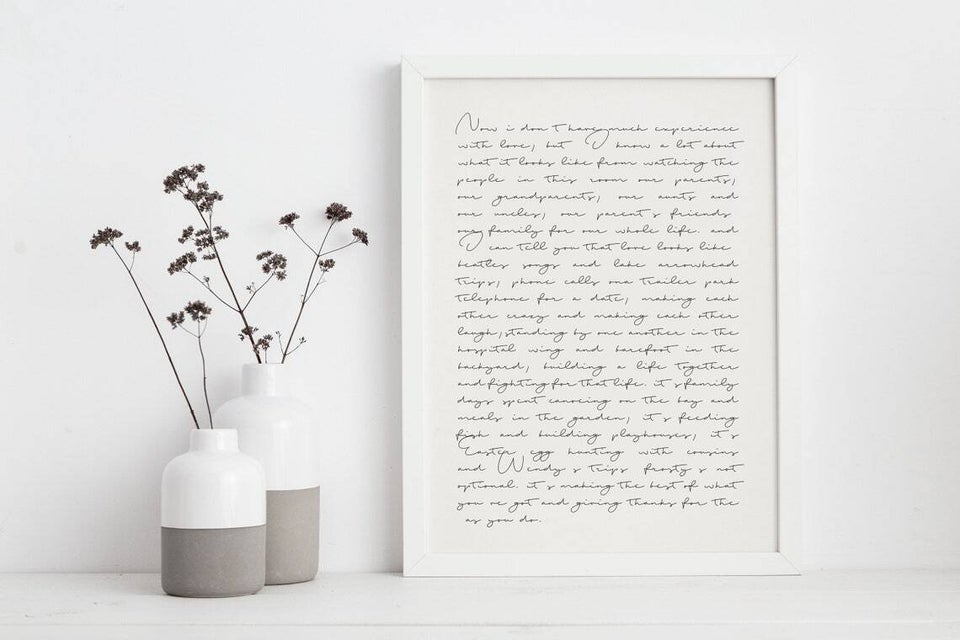 Now i don t have much experience
with love, but I know a lot about
what it looks like from watching the
people in this room our parents,
our grandparents, our aunts and
our uncles, our parent s friends
our family for our whole life. and
I can tell you that love looks like
beatles songs and lake arrowhead
trips, phone calls on a trailer park
telephone for a date, making each
other crazy and making each other
laugh, standing by one another in the
hospital wing and barefoot in the
backyard, building a life together
and fighting for that life. it s family
days spent canoeing on the bay and
meals in the garden, it s feeding
fish and building playhouses, it s
Easter egg hunting with cousins
and Wendy s trips frosty s not
optional. it s making the best of what
you ve got and giving thanks for the
as you do.